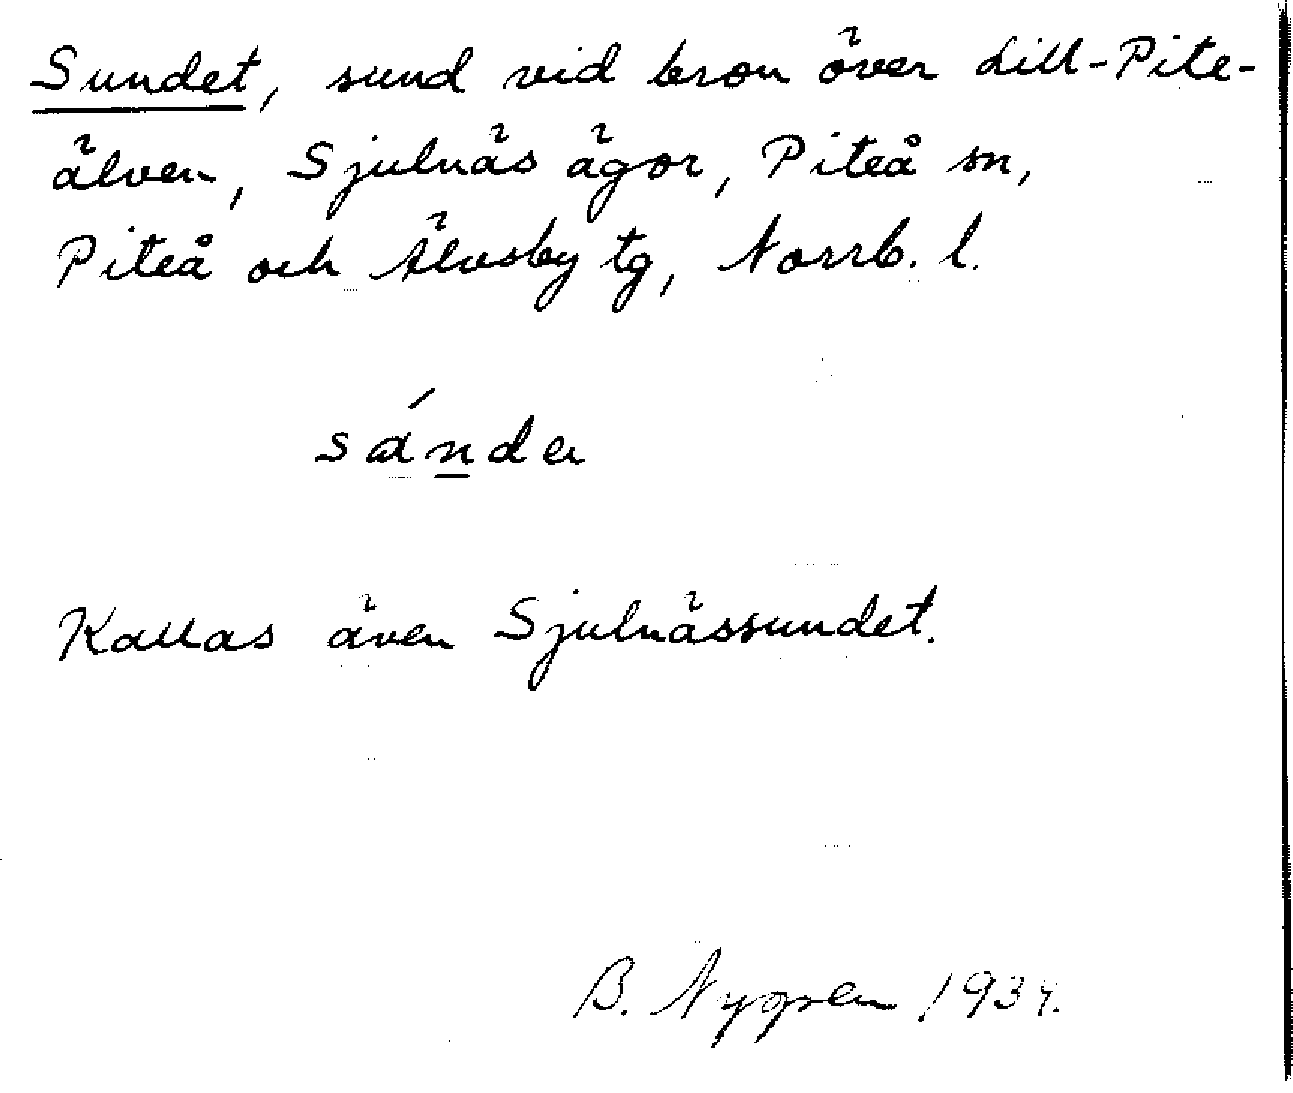 Sundet, sund vid bron över Lill-Pite-
älven, Sjulnäs ägor, Piteå sn,
Piteå och Älvsby tg, Norrb. l.
sánda
Kallas även Sjulnässundet.
B. Nygren 1934.